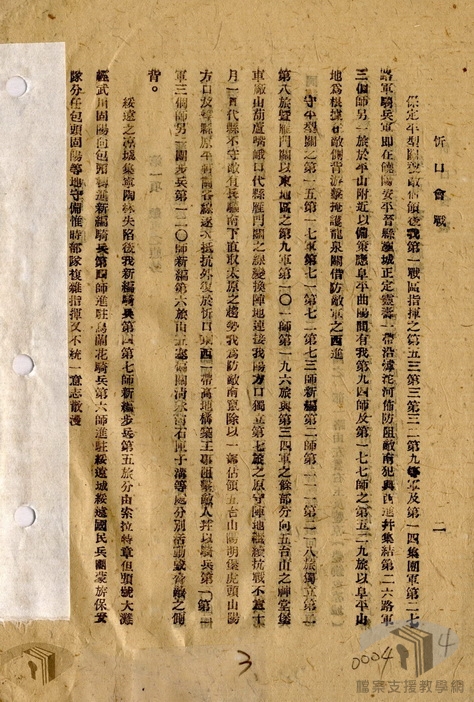 忻口會戰
二
保定平型關被敵佔領後我第一戰區指揮之第五三第三二第九等軍及第一四集團軍第二七
路軍騎兵軍即在德陽安平晉縣藁城正定靈壽一帶沿滹沱河佈防阻敵南犯與西進并集結第二六路軍
三個師另一旅於平山附近以備策應阜平曲陽間有我第九四師及第一七七師之第五二九旅以阜平山
地為根據谷敵側背游擊掩護龍泉關借防敵軍之西進
守平型關之第一五第一七軍第七一第七二第七三師新編第二師第二一八旅獨立第二
第八旅暨雁門關以東地區之第九軍第一〇一師第一九六旅與第三四軍之餘部分向五台山之神堂堡
車廠山葫蘆嘴峨口代縣雁門關之線變換陣地連接我陽方口獨立第七旅之原守陣地繼續抗戰不意十
月一日代縣不守敵有兵縣南下直取太原之趨勢我為防敵南竄除以一部佔領五台山陽明堡虎頭山陽
方口及等縣原平軒崗各線逐次抵抗外復於忻口以西一帶高地構築主陣阻擊敵人并以騎兵第一〇第二
軍三個師另一團步兵第一二〇師新編第六旅山五寨偏關清水河石陣子溝等處分別活動威脅敵之側
背。
綏遠之涼城集寧陶林失陷後我新編騎兵第四第七師新編步兵第五旅分由索拉特章但頭號大灘
經武川固陽向包頭轉進新編騎兵第四師進駐烏蘭花騎兵第六師進駐綏遠城綏遠國民兵團蒙旂保安
隊分任包頭固陽等地守備惟時部隊複雜指揮又不統一意志散漫
3
0004
4
檔案支援教學網